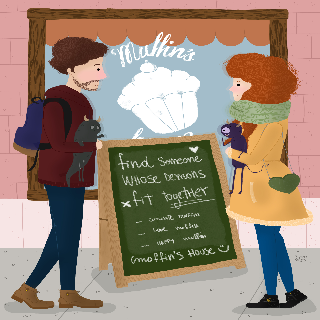 Muffin's
find Someone
Whose Demons
fit together
muffin
love muffin
muffin
Gmoffin's House